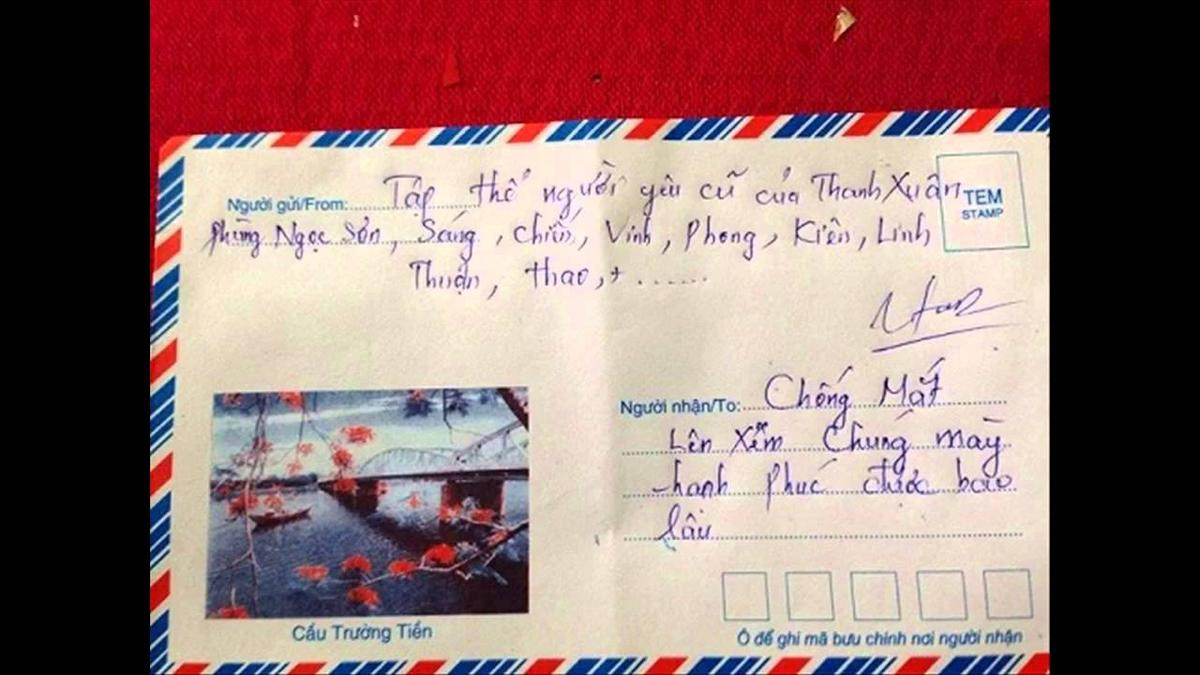 Người gửi/From: Tập thể người yêu cũ của Thanh Xuân
TEM
STAMP
Phùng Ngọc Sơn, Sáng, Chiến, Vinh, Phong, Kiên, Linh
Thuận, thao, + ......
Người nhận/To: Chống Mắt
Lên Xem Chúng mày
hạnh phúc được bao
lâu
Cầu Trường Tiền
Ô để ghi mã bưu chính nơi người nhận